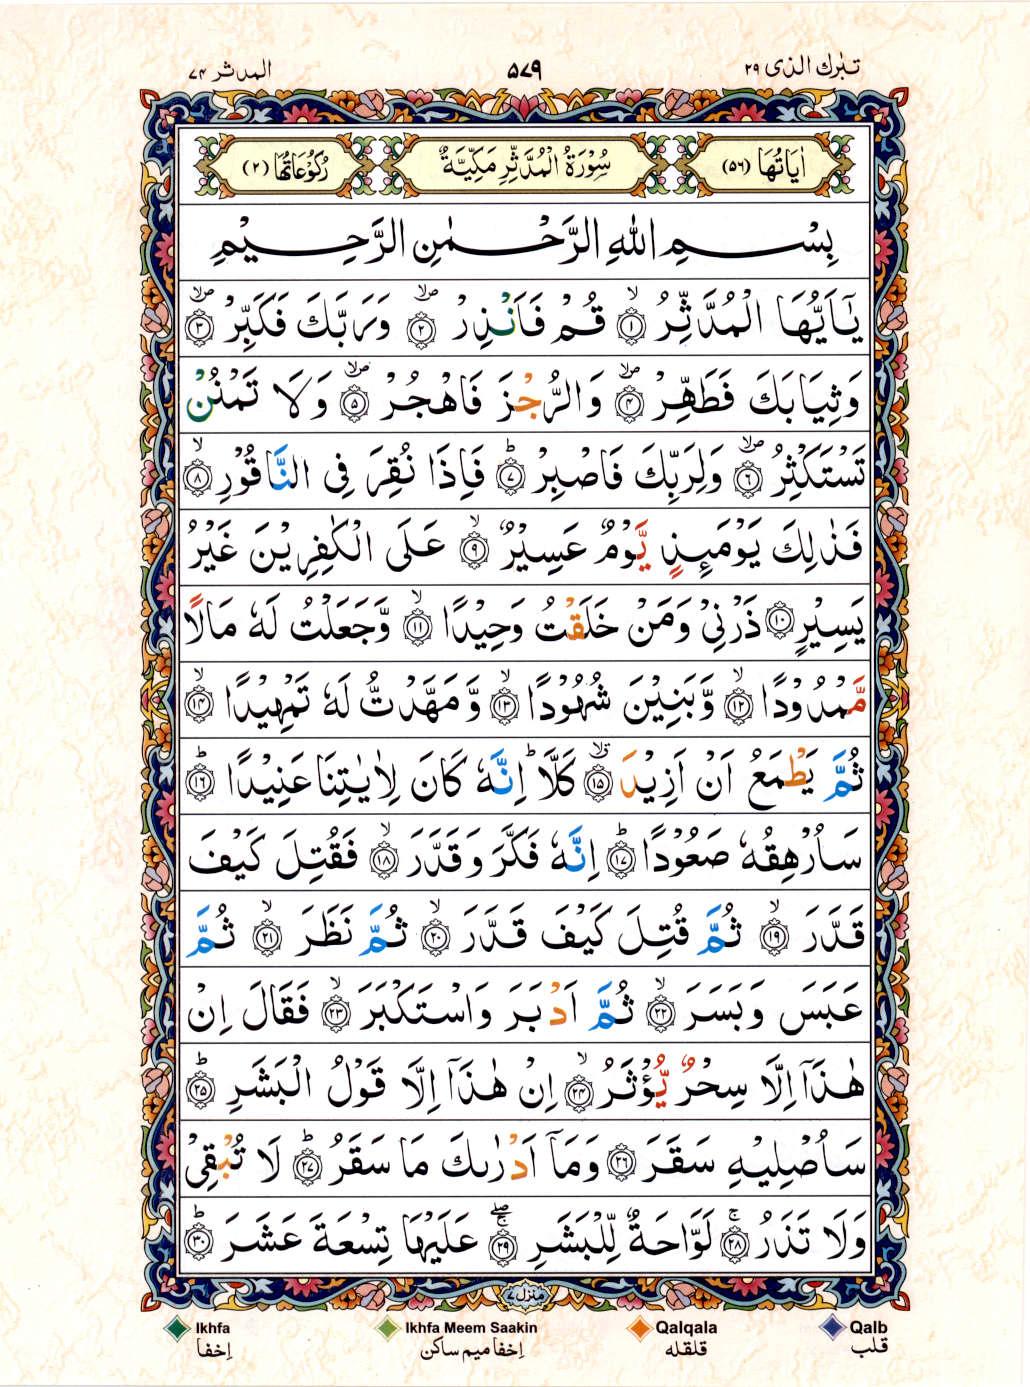 تبٰرك الذى ٢٩ ۵۷۹ المدثر ۷۴
اٰيَاتُهَا (۵۶) سُوْرَةُ الْمُدَّثِّرِ مَكِّيَّةٌ رُكُوْعَاتُهَا (۲)
بِسْمِ اللهِ الرَّحْمٰنِ الرَّحِيْمِ
يٰٓاَيُّهَا الْمُدَّثِّرُ ۙ﴿۱﴾ قُمْ فَاَنْذِرْ ۪ۙ﴿۲﴾ وَرَبَّكَ فَكَبِّرْ ۪ۙ﴿۳﴾
وَثِيَابَكَ فَطَهِّرْ ۪ۙ﴿۴﴾ وَالرُّجْزَ فَاهْجُرْ ۪ۙ﴿۵﴾ وَلَا تَمْنُنْ
تَسْتَكْثِرُ ۪ۙ﴿۶﴾ وَلِرَبِّكَ فَاصْبِرْ ؕ﴿۷﴾ فَاِذَا نُقِرَ فِى النَّاقُوْرِ ۙ﴿۸﴾
فَذٰلِكَ يَوْمَئِذٍ يَّوْمٌ عَسِيْرٌ ۙ﴿۹﴾ عَلَى الْكٰفِرِيْنَ غَيْرُ
يَسِيْرٍ ﴿۱۰﴾ ذَرْنِىْ وَمَنْ خَلَقْتُ وَحِيْدًا ۙ﴿۱۱﴾ وَّجَعَلْتُ لَهٗ مَالًا
مَّمْدُوْدًا ۙ﴿۱۲﴾ وَّبَنِيْنَ شُهُوْدًا ۙ﴿۱۳﴾ وَّمَهَّدْتُّ لَهٗ تَمْهِيْدًا ۙ﴿۱۴﴾
ثُمَّ يَطْمَعُ اَنْ اَزِيْدَ ۙ﴿۱۵﴾ كَلَّا ؕ اِنَّهٗ كَانَ لِاٰيٰتِنَا عَنِيْدًا ؕ﴿۱۶﴾
سَاُرْهِقُهٗ صَعُوْدًا ؕ﴿۱۷﴾ اِنَّهٗ فَكَّرَ وَقَدَّرَ ۙ﴿۱۸﴾ فَقُتِلَ كَيْفَ
قَدَّرَ ۙ﴿۱۹﴾ ثُمَّ قُتِلَ كَيْفَ قَدَّرَ ۙ﴿۲۰﴾ ثُمَّ نَظَرَ ۙ﴿۲۱﴾ ثُمَّ
عَبَسَ وَبَسَرَ ۙ﴿۲۲﴾ ثُمَّ اَدْبَرَ وَاسْتَكْبَرَ ۙ﴿۲۳﴾ فَقَالَ اِنْ
هٰذَآ اِلَّا سِحْرٌ يُّؤْثَرُ ۙ﴿۲۴﴾ اِنْ هٰذَآ اِلَّا قَوْلُ الْبَشَرِ ؕ﴿۲۵﴾
سَاُصْلِيْهِ سَقَرَ ﴿۲۶﴾ وَمَآ اَدْرٰىكَ مَا سَقَرُ ؕ﴿۲۷﴾ لَا تُبْقِىْ
وَلَا تَذَرُ ۚ﴿۲۸﴾ لَوَّاحَةٌ لِّلْبَشَرِ ۖۚ﴿۲۹﴾ عَلَيْهَا تِسْعَةَ عَشَرَ ؕ﴿۳۰﴾
منزل ۷
Ikhfa Ikhfa Meem Saakin Qalqala Qalb
اِخفا اِخفا ميم ساكن قلقله قلب